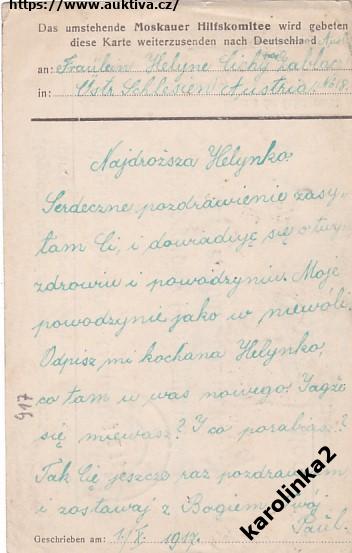 https://www.auktiva.cz/
Das umstehende Moskauer Hilfskomitee wird gebeten
diese Karte weiterzusenden nach Deutschland
an: Fräulein Helyne Cichy
in: Ostr Schlesien Austria
Najdroższa Helynko.
Serdeczne pozdrawienie zasy-
łam Ci, i dowiaduję się o twym
zdrowiu i powodzyniu. Moje
powodzynie jako w niewóli.
Odpisz mi kochana Helynko,
co tam u was nowego. Jagże
się miewasz? I co porabiasz?
Tak Cię jeszcze raz pozdrawiam
i zostawaj z Bogiem Twój
Paul.
Geschrieben am: 1./X. 1917.
917
karolinka2